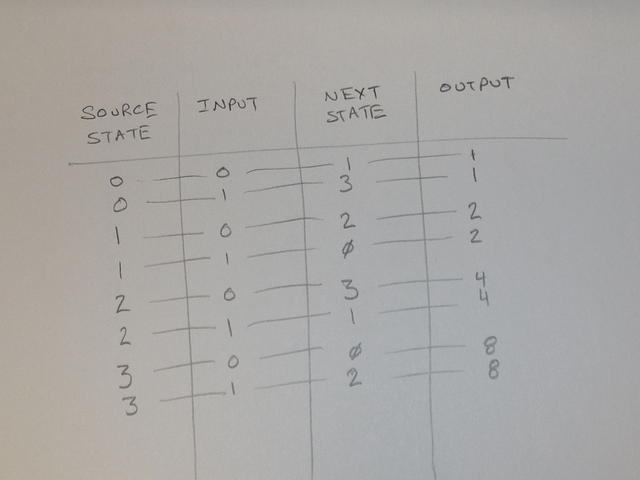 SOURCE STATE INPUT NEXT STATE OUTPUT
0 0 1 1
0 1 3 1
1 0 2 2
1 1 ∅ 2
2 0 3 4
2 1 1 4
3 0 ∅ 8
3 1 2 8